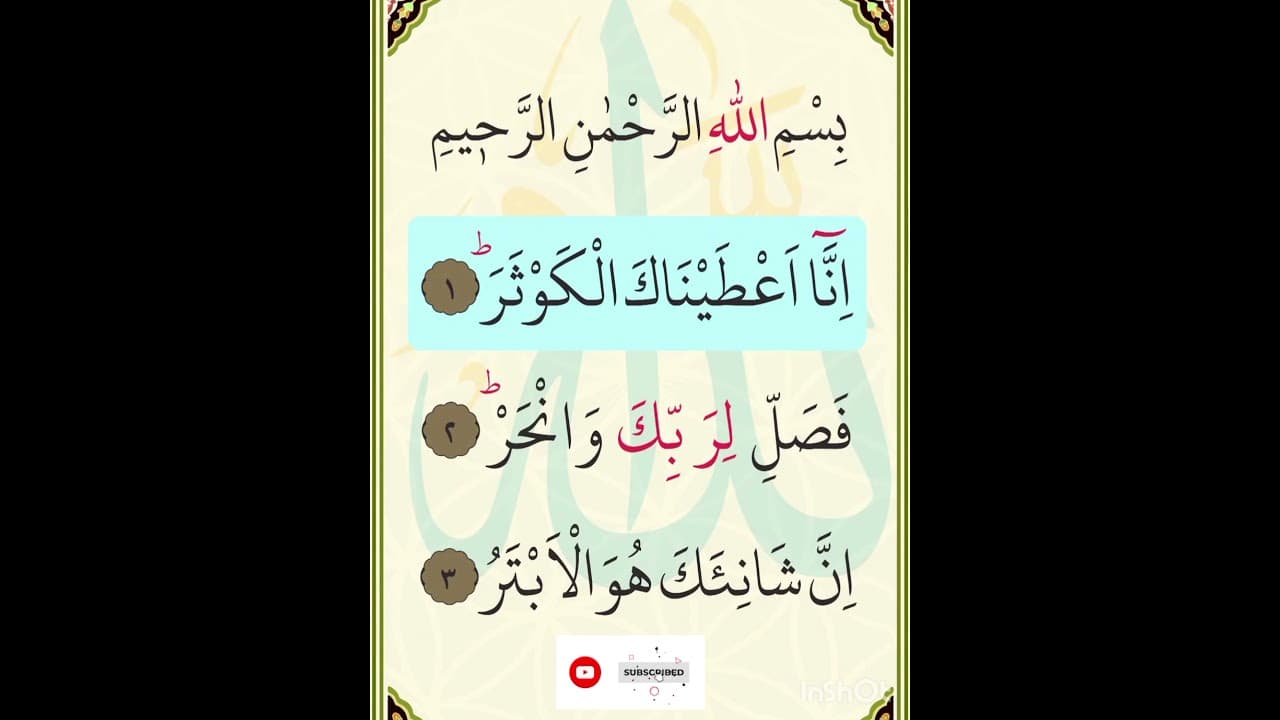 بِسْمِ اللّٰهِ الرَّحْمٰنِ الرَّحِيْمِ
اِنَّآ اَعْطَيْنَاكَ الْكَوْثَرَ ؕ ١
فَصَلِّ لِرَبِّكَ وَانْحَرْ ؕ ٢
اِنَّ شَانِئَكَ هُوَ الْاَبْتَرُ ٣
SUBSCRIBED
InShOt